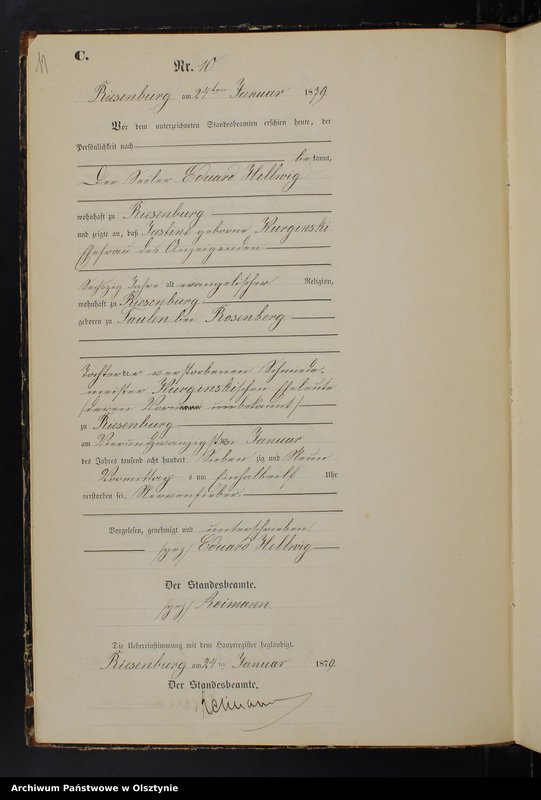 11
C.
Nr. 10
Riesenburg am 24ten Januar 1879
Vor dem unterzeichneten Standesbeamten erschien heute, der
Persönlichkeit nach
bekannt,
Der Seiler Eduard Hellwig
wohnhaft zu Riesenburg
und zeigte an, daß Justine geborne Kurginski
Ehefrau des Anzeigenden
Sechszig Jahre alt evangelischer Religion,
wohnhaft zu Riesenburg
geboren zu Faulen bei Rosenberg
Tochter der verstorbenen Schmiede-
meister Kurginskischen Eheleute
(deren Vornamen unbekannt)
zu Riesenburg
am Vierundzwanzigsten Januar
des Jahres tausend acht hundert Siebenzig und Neun
Vormittag s um Einhalbeilf Uhr
verstorben sei. Nervenfieber.
Vorgelesen, genehmigt und unterschrieben.
(gez) Eduard Hellwig
Der Standesbeamte.
(gez) Reimann.
Die Uebereinstimmung mit dem Hauptregister beglaubigt.
Riesenburg am 24ten Januar 1879
Der Standesbeamte.
Reimann
Archiwum Państwowe w Olsztynie